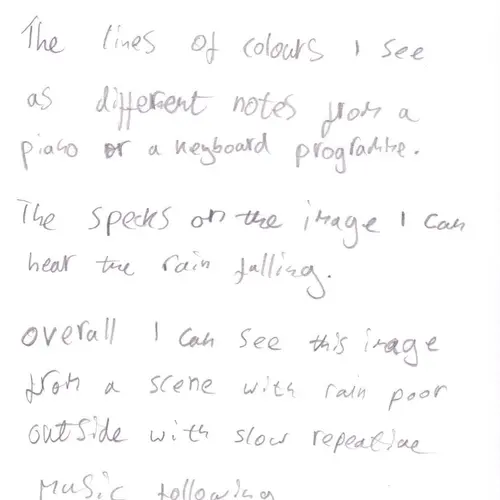 The lines of colours I see
as different notes from a
piano or a keyboard programme.
The specks on the image I can
hear the rain falling.
overall I can see this image
from a scene with rain poor
outside with slow repeative
music following